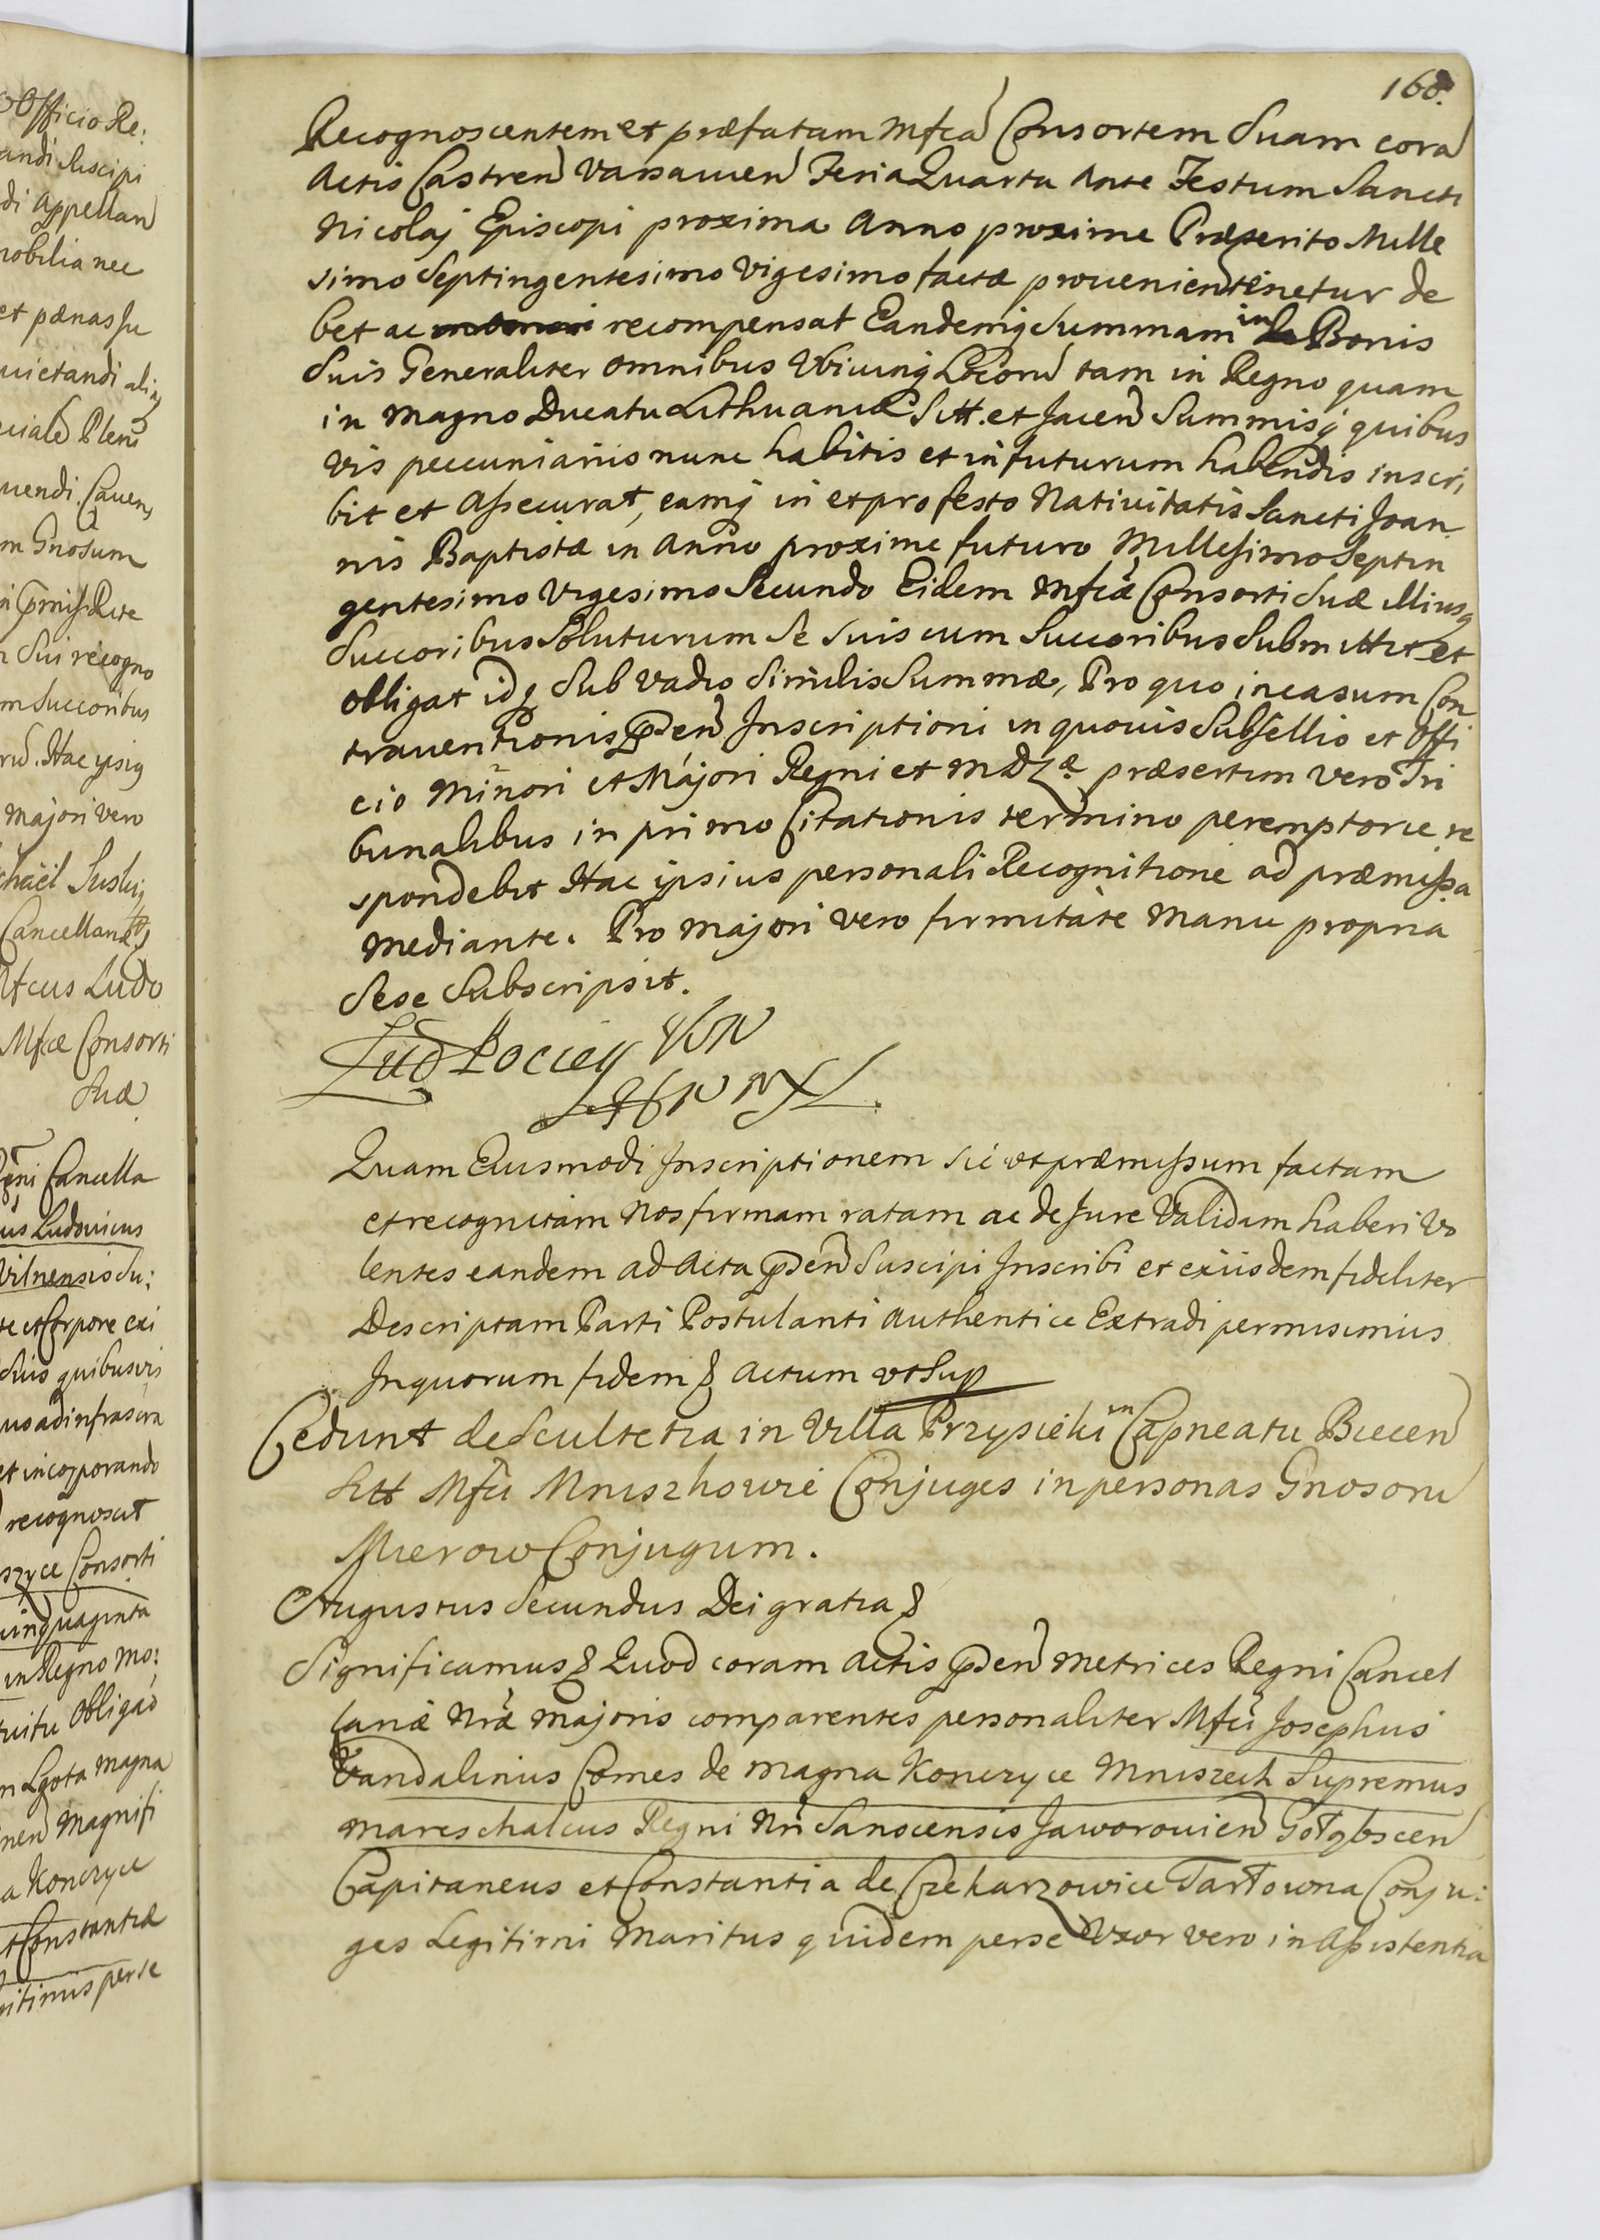 Officio Re:
andi Suscipi
di Appellan
nobilia nec
et pænas su
uietandi
Plen
uendi. Cauen
m Gnosum
Rite
Sui recogno
m Succoribus
Hac ipsiq
Majori vero
Cancellari
Ludo
Mfcæ Consorti
Suæ
Cancella
us Ludouicus
Vilnensis Su:
te et Corpore exi
Suis quibusvis
us ad infrascra
et incorporando
recognoscit
Consorti
quinquaginta
in Regno Mo:
Obligao
Lgota Magna
Magnifi
a Konczyce
et Constantiæ
per se
168.
Recognoscentem et præfatam Mfca Consortem Suam cora
Actis Castren Varsauien Feria Quarta Ante Festum Sancti
Nicolaj Episcopi proxima Anno proxime Præterito Mille
simo Septingentesimo Vigesimo factæ prouenien tenetur de
bet ac recompensat Eandemq Summam in Bonis
Suis Generaliter omnibus Vbiuinq Locoru tam in Regno quam
in Magno Ducatu Lithuaniæ Sitt. et Jacen Summisq quibus
vis pecuniariis nunc habitis et in futurum habendis inscri
bit et Assecurat, eamq in et pro festo Natiuitatis Sancti Joan
nis Baptistæ in Anno proxime futuro Millesimo Septin
gentesimo Vigesimo Secundo Eidem Mfcæ Consorti Suæ illiusq
Succoribus Soluturum Se Suis cum Succoribus Submittit et
obligat idq Sub vadio Similis Summæ, Pro quo in casum Con
trauentionis pden Inscriptioni in quouis Subsellio et Offi
cio Minori et Majori Regni et MDLæ præsertim vero Tri
bunalibus in primo Citationis termino peremptorie re
spondebit Hac ipsius personali Recognitione ad præmissa
mediante. Pro majori vero firmitate Manu propria
Sese Subscripsit.
Lud Pociey WW
HWWXL.
Quam Eiusmodi Inscriptionem sic vt præmissum factam
et recognitam nos firmam ratam ac de Jure Validam haberi vo
lentes eandem ad Acta pden Suscipi Inscribi et exiisdem fideliter
Descriptam Parti Postulanti Authentice Extradi permisimus
In quorum fidem & Actum vt Sup
Cedunt de Scultetia in Villa Przysieki in Capneatu Biecen
Sitt Mfci Mniszhowie Conjuges in personas Gnosoru
Mierow Conjugum.
Augustus Secundus Dei gratia &
Significamus & Quod coram Actis pden Metrices Regni Cancel
lariæ Nræ Majoris comparentes personaliter Mfci Josephus
Vandalinus Comes de Magna Konczyce Mniszech Supremus
Mareschalcus Regni Nri Sanocensis Jaworouien Gołąbscen
Capitaneus et Constantia de Czekarzowice Tarłowna Conju:
ges Legitimi Maritus quidem per se Vxor vero in Assistentia